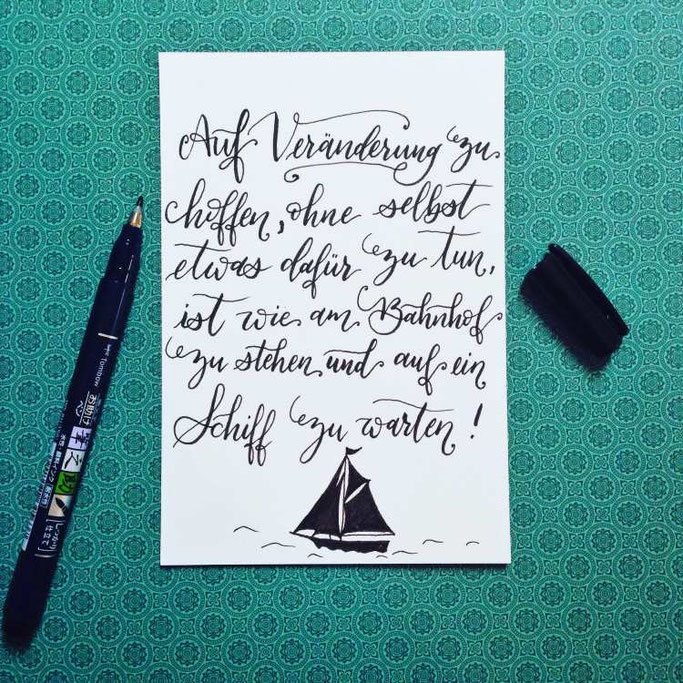 Auf Veränderung zu
hoffen, ohne selbst
etwas dafür zu tun,
ist wie am Bahnhof
zu stehen und auf ein
Schiff zu warten!
Tombow
お助け
ペン